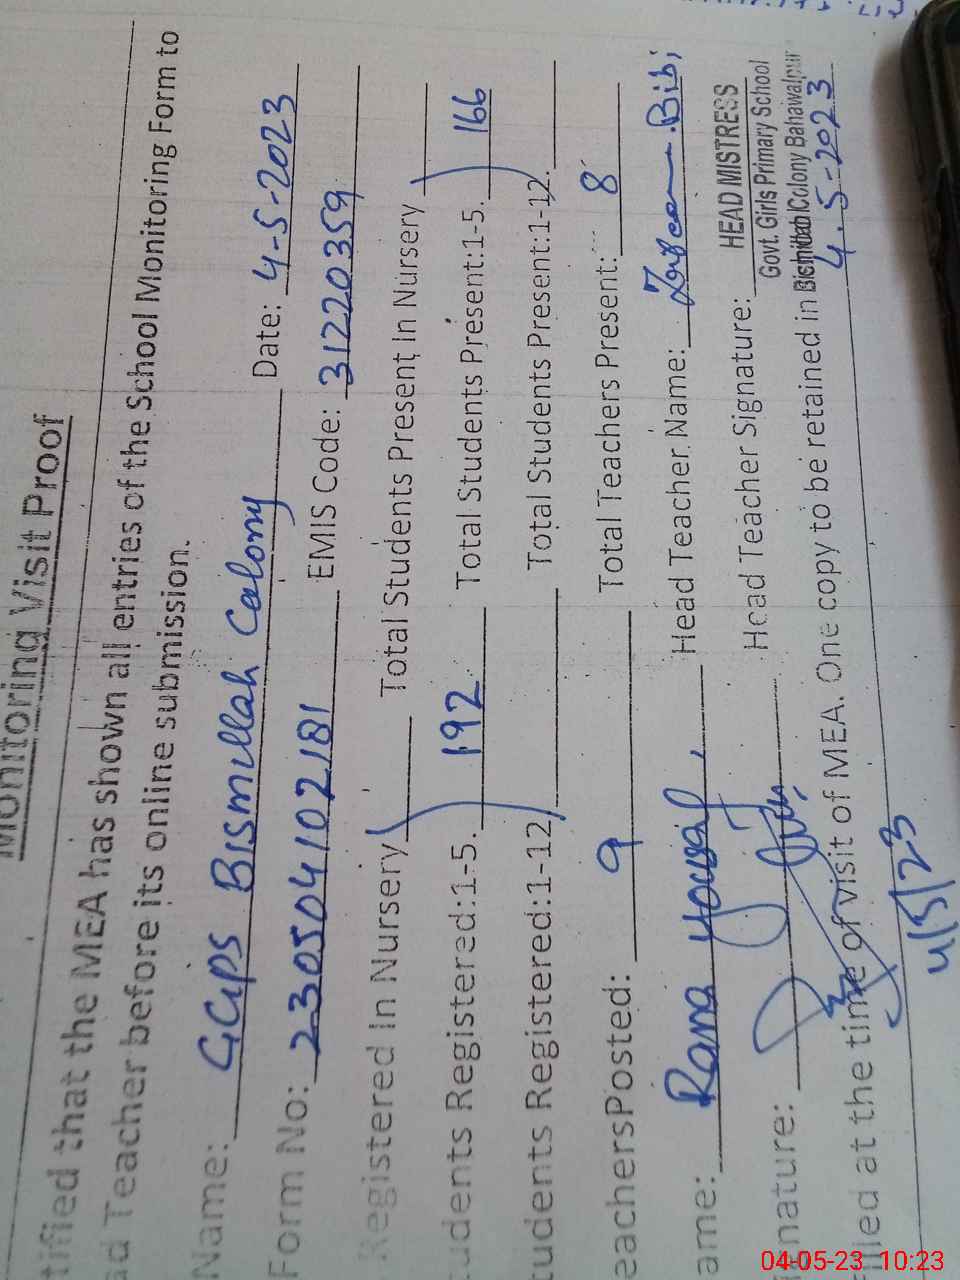 Monitoring Visit Proof
tified that the MEA has shown all entries of the School Monitoring Form to
ad Teacher before its online submission.
Name: GGPS Bismillah Colony Date: 4-5-2023
Form No: 230504102181 EMIS Code: 31220359
Registered In Nursery Total Students Present In Nursery
tudents Registered:1-5. 192 Total Students Present:1-5. 166
tudents Registered:1-12 Total Students Present:1-12.
eachers Posted: 9 Total Teachers Present: 8
ame: Rana Yousaf Head Teacher Name: Bibi
gnature: Head Teacher Signature:
HEAD MISTRESS
Govt. Girls Primary School
Colony Bahawalpur
illed at the time of visit of MEA. One copy to be retained in
4.5-2023
4/5/23
04-05-23 10:23